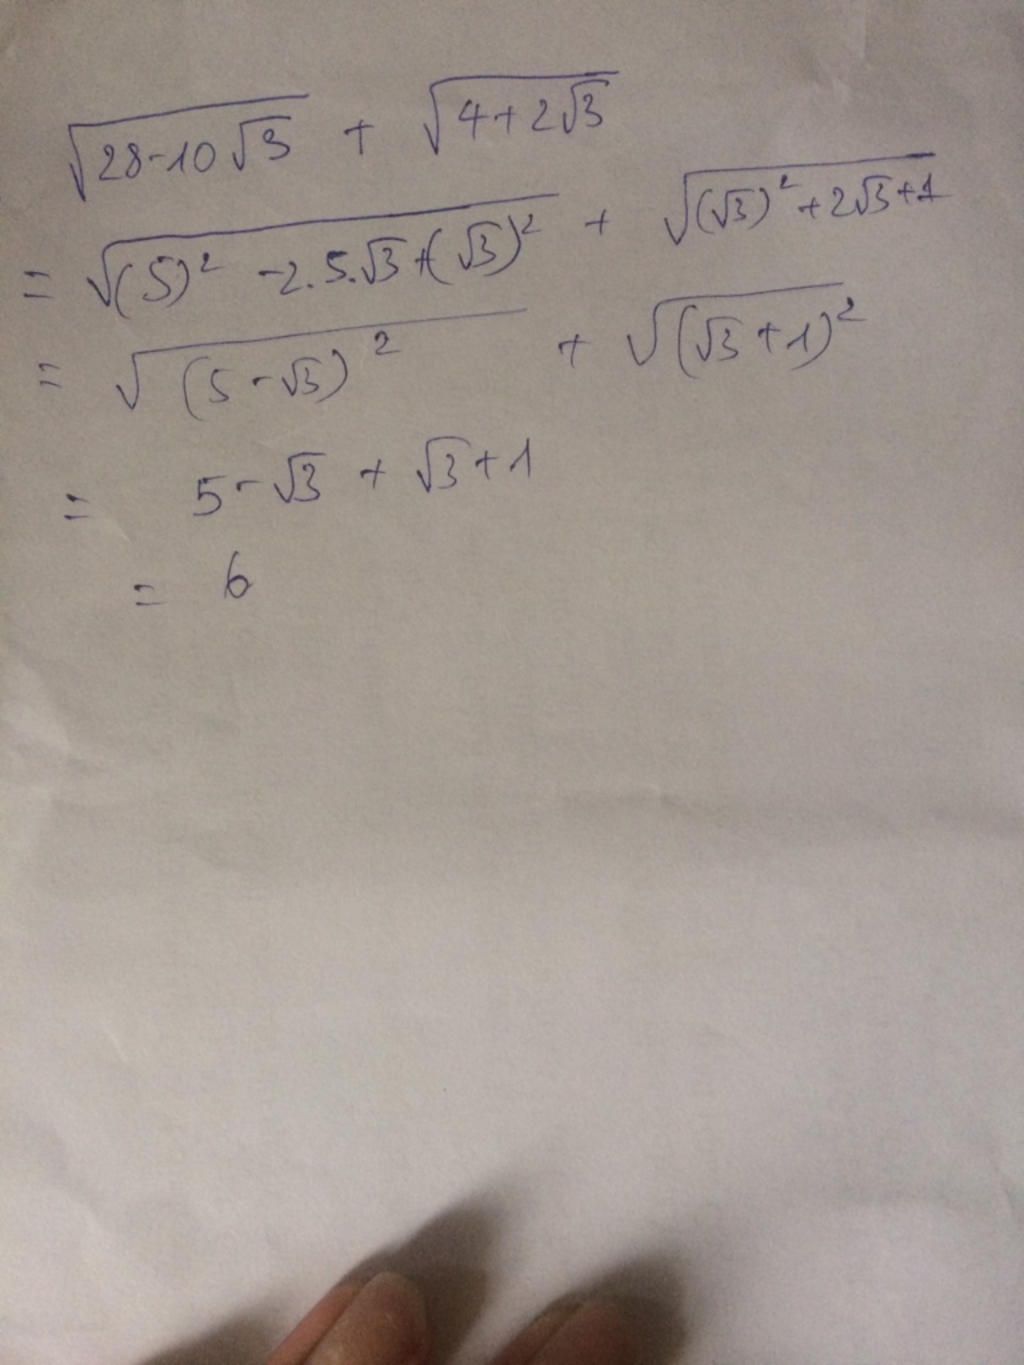 √(28-10√3) + √(4+2√3)
= √((5)² -2.5.√3+(√3)²) + √((√3)²+2√3+1)
= √((5-√3)²) + √((√3+1)²)
= 5-√3 + √3+1
= 6